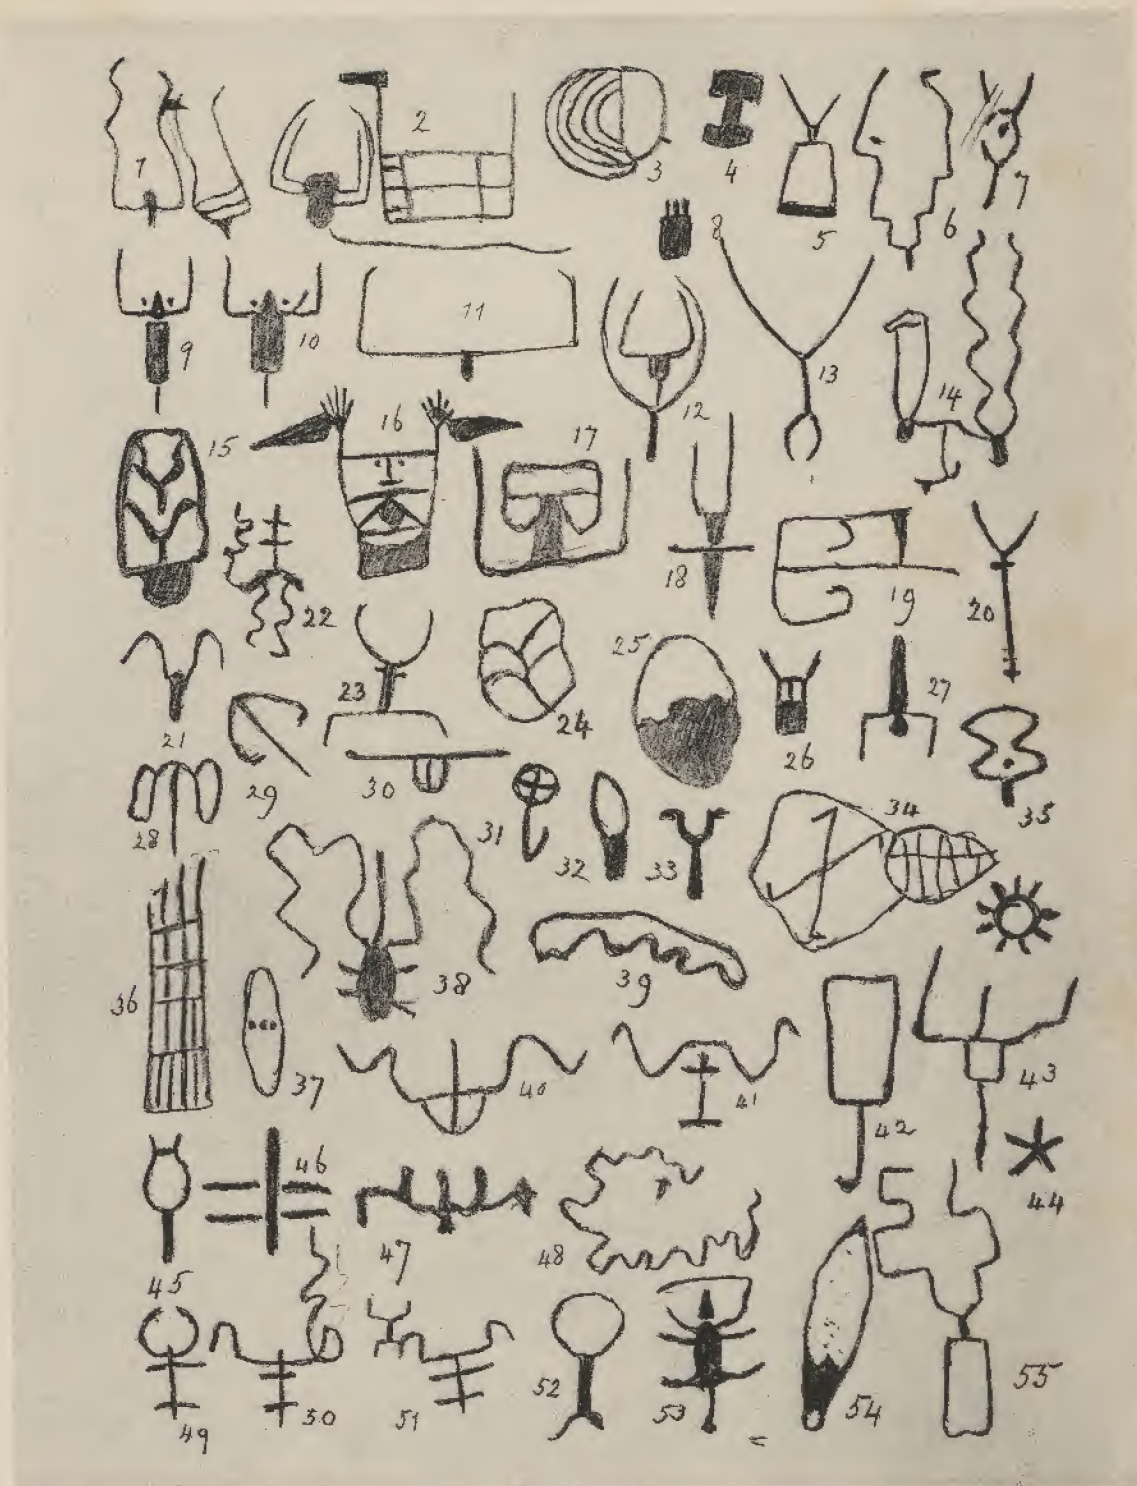 1 2 3 4 5 6 7
8
9 10 11 12 13 14
15 16 17
18 19 20
21 22 23 24 25 26 27
28 29 30 31 32 33 34 35
36 37 38 39
40 41 42 43
44
45 46 47 48
49 50 51 52 53 54 55